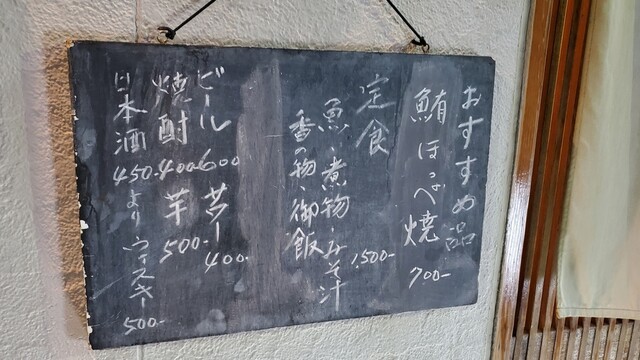 おすすめ品
鮪ほっぺ焼 700-
定食
魚・煮物・みそ汁 1,500-
香の物・御飯
ビール 600 サワー 400-
焼酎 400 芋 500-
日本酒 450-より ウィスキー 500-